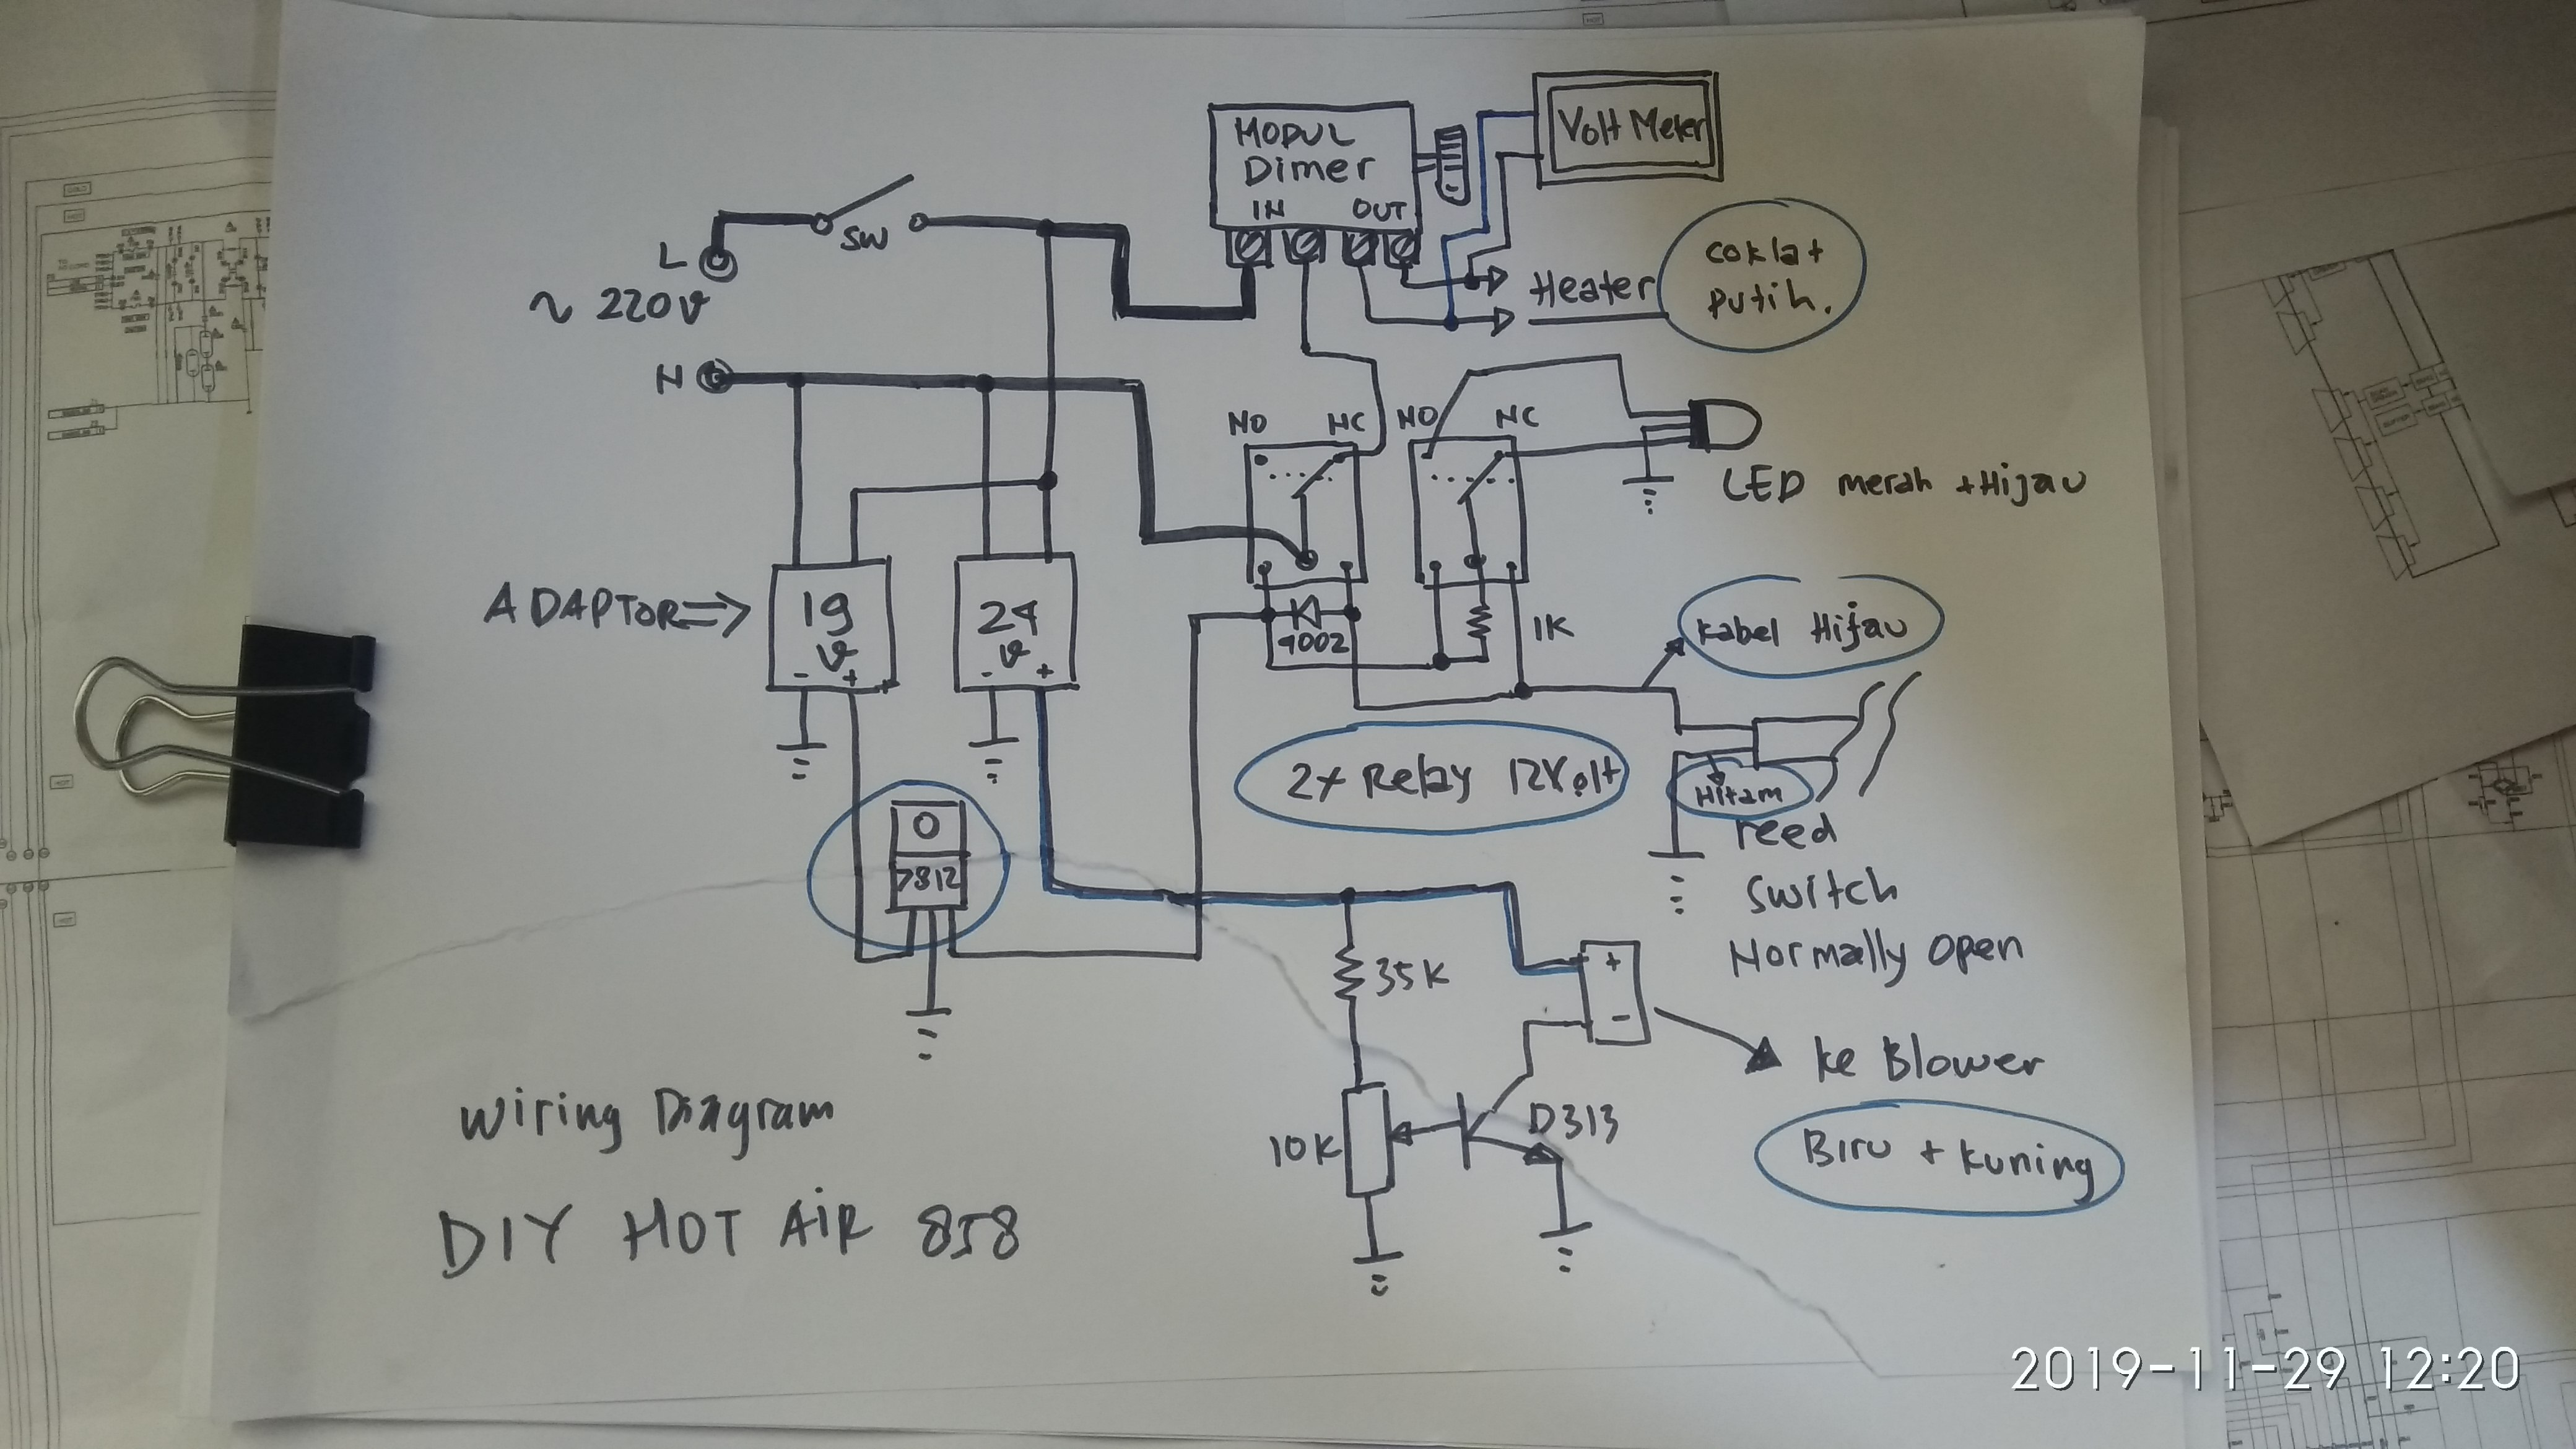 MODUL
Dimer
IN OUT
Volt Meter
L
SW
~ 220V
N
Heater
coklat
putih.
NO NC NO NC
LED merah + Hijau
ADAPTOR=>
19
V
- +
24
V
- +
4002
1K
Kabel Hijau
2x Relay 12Volt
Hitam
reed
Switch
Normally Open
7812
35K
+
-
ke Blower
10K
D313
Biru + kuning
Wiring Diagram
DIY HOT AiR 858
2019-11-29 12:20